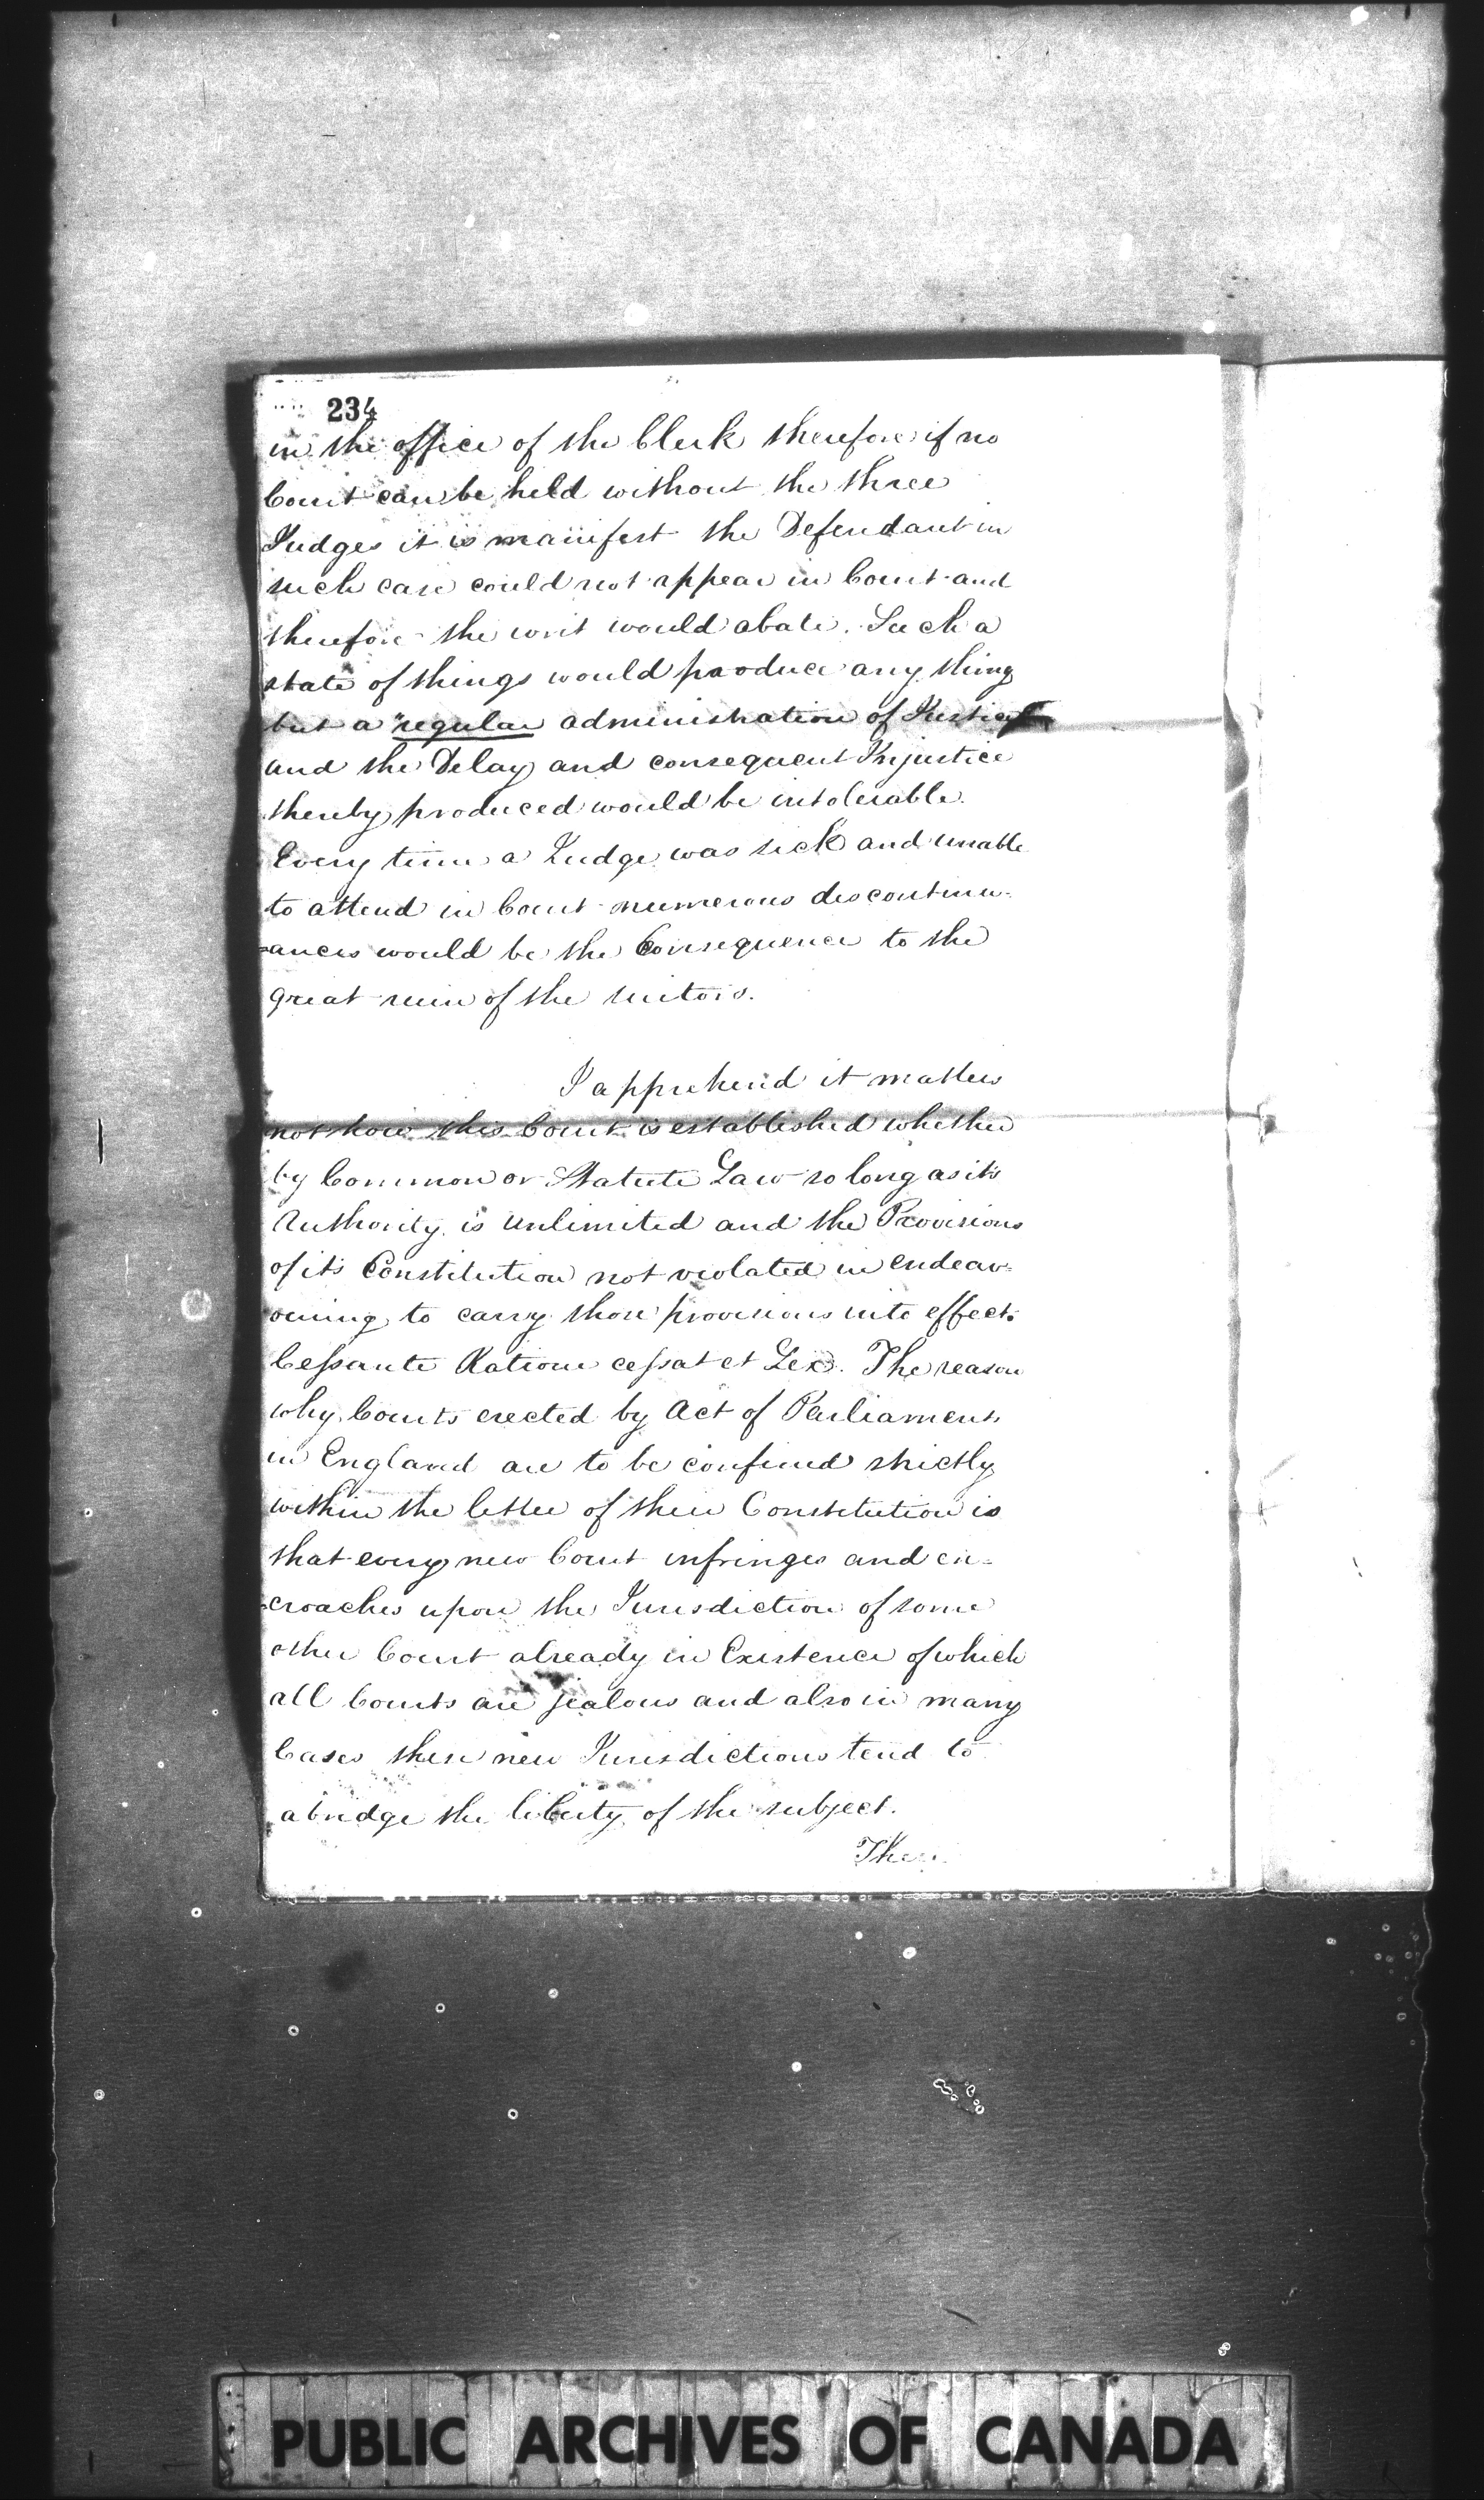 234
in the office of the Clerk therefore if no
Court can be held without the three
Judges it is manifest the Defendant in
such case could not appear in Court and
therefore the writ would abate. Such a
state of things would produce any thing
but a "regular administration of Justice
and the Delay and consequent Injustice
thereby produced would be intolerable.
Every time a Judge was sick and unable
to attend in Court numerous discontinu-
-ances would be the Consequence to the
great ruin of the suitors.
I apprehend it matters
not how this Court is established whether
by Common or Statute Law so long as its
Authority is unlimited and the Provisions
of its Constitution not violated in endeav-
ouring to carry those provisions into effect.
Cessante Ratione cessat et Lex. The reason
why Courts erected by Act of Parliament
in England are to be confined strictly
within the letter of their Constitution is
that every new Court infringes and en-
-croaches upon the Jurisdiction of some
other Court already in Existence of which
all Courts are jealous and also in many
Cases these new Jurisdictions tend to
abridge the liberty of the subject.
PUBLIC ARCHIVES OF CANADA